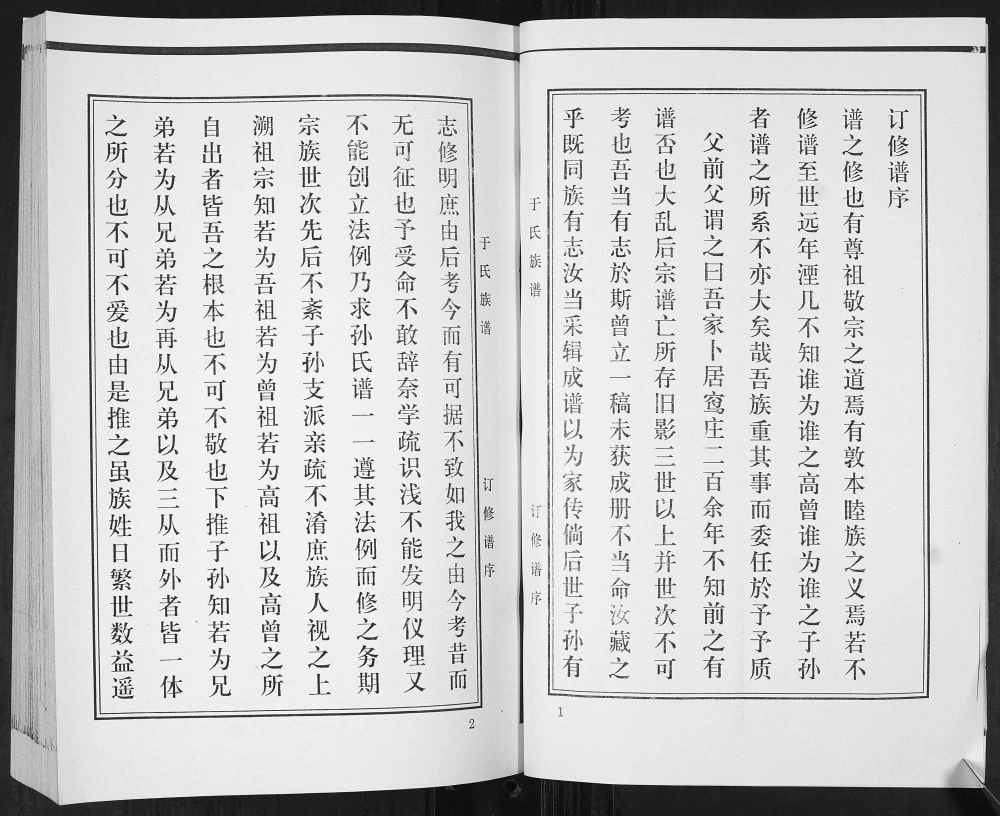 订修谱序
谱之修也有尊祖敬宗之道焉有敦本睦族之义焉若不
修谱至世远年湮几不知谁为谁之高曾谁为谁之子孙
者谱之所系不亦大矣哉吾族重其事而委任於予予质
父前父谓之曰吾家卜居窎庄二百余年不知前之有
谱否也大乱后宗谱亡所存旧影三世以上并世次不可
考也吾当有志於斯曾立一稿未获成册不当命汝藏之
乎既同族有志汝当采辑成谱以为家传倘后世子孙有
于氏族谱
订修谱序
1
志修明庶由后考今而有可据不致如我之由今考昔而
无可征也予受命不敢辞奈学疏识浅不能发明仪理又
不能创立法例乃求孙氏谱一一遵其法例而修之务期
宗族世次先后不紊子孙支派亲疏不淆庶族人视之上
溯祖宗知若为吾祖若为曾祖若为高祖以及高曾之所
自出者皆吾之根本也不可不敬也下推子孙知若为兄
弟若为从兄弟若为再从兄弟以及三从而外者皆一体
之所分也不可不爱也由是推之虽族姓日繁世数益遥
于氏族谱
订修谱序
2